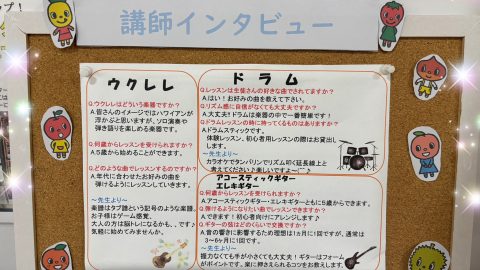 プ！
講師インタビュー
ウクレレ
Q.ウクレレはどういう楽器ですか？
A.皆さんのイメージではハワイアンが
浮かぶと思いますが、ソロ演奏や
弾き語りを楽しめる楽器です。
Q.何歳からレッスンを受けられますか？
A.5歳から始めることができます。
Q.どのような曲でレッスンするのですか？
A.年代に合わせたお好みの曲を
弾けるようにレッスンしていきます。
～先生より～
楽譜はタブ譜という記号のような楽譜、
お子様はゲーム感覚、
大人の方は脳トレになるかも、、です♪
気軽に始めてみませんか。
ドラム
Q.レッスンは生徒さんの好きな曲でされてますか？
A.はい！お好みの曲を教えて下さい。
Q.リズム感に自信がなくても大丈夫ですか？
A.大丈夫！ドラムは楽器の中で一番簡単です！
Q.ドラムレッスンの時に持ってくるものはありますか？
A.ドラムスティックです。
体験レッスン、初心者用レッスンの際はお貸出し
します。
～先生より～
カラオケでタンバリンでリズム叩く延長線上と
考えてください♪楽しいですよー(^^♪
アコースティックギター
エレキギター
Q.何歳からレッスンを受けられますか？
A.アコースティックギター・エレキギターともに5歳からできます。
Q.弾けるようになりたい曲でレッスンできますか？
A.できます！初心者向けにアレンジします♪
Q.ギターの弦はどのくらいで交換ですか？
A.音の響きに影響するため理想は1ヵ月に1回ですが、通常は
3～6ヶ月に1回です。
～先生より～
握力なくても手が小さくても大丈夫！ギターはフォーム
がポイントです。楽に押えられるコツをお教えします。